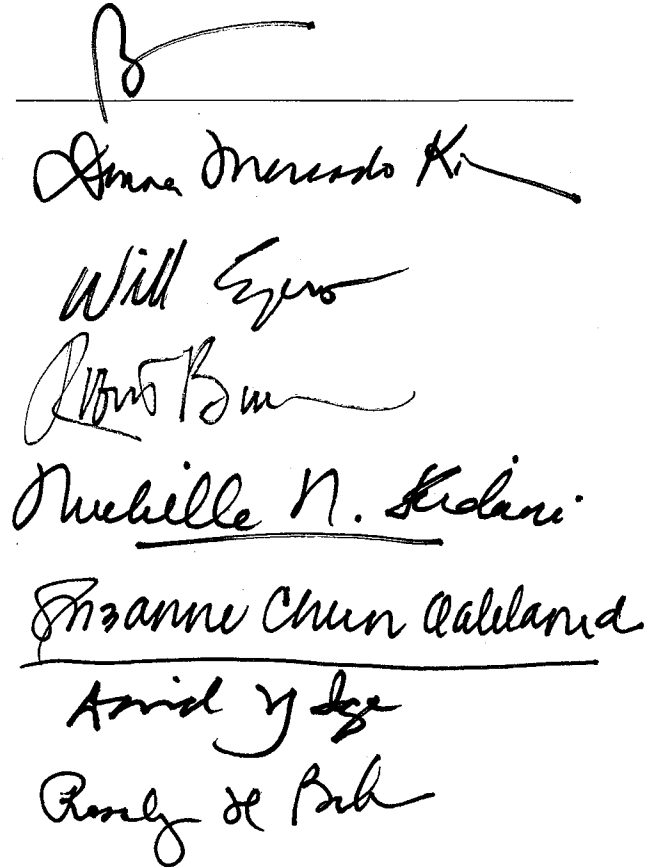 Donna Mercado Kim
Will Espero
Robert B
Michelle N. Kidani
Suzanne Chun Oakland
David Y Ige
Rosalyn H Baker